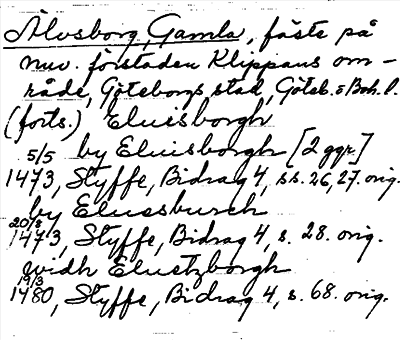 Älvsborg, Gamla, fäste på
nuv. förstaden Klippans om-
råde, Göteborgs stad, Göteb. o Boh. l.
(forts.) Eluisborgh
5/5 by Eluisborgh [2 ggr.]
1473, Styffe, Bidrag 4, ss. 26, 27. orig.
by Eluessburch
20/8
1473, Styffe, Bidrag 4, s. 28. orig.
widh Eluetzborgh
19/3
1480, Styffe, Bidrag 4, s. 68. orig.